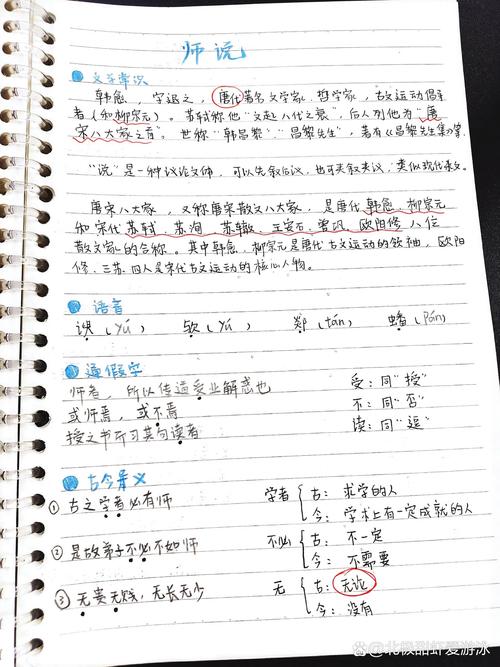 师说
文学常识
韩愈,字退之,唐代著名文学家、哲学家,古文运动倡导
者(和柳宗元)。苏轼称他“文起八代之衰”,后人列他为“唐
宋八大家之首”。世称“韩昌黎”“昌黎先生”,著有《昌黎先生集》等。
“说”是一种议论文体,可以先叙后议,也可夹叙夹议,类似现代杂文。
唐宋八大家,又称唐宋散文八大家,是唐代韩愈、柳宗元
和宋代苏轼、苏洵、苏辙、王安石、曾巩、欧阳修八位
散文家的合称。其中韩愈、柳宗元是唐代古文运动的领袖,欧阳
修、三苏四人是宋代古文运动的核心人物。
语音
谀(yú) (yú) 郯(tán) 蟠(Pán)
通假字
师者,所以传道受业解惑也 受:同“授”
或师焉,或不焉 不:同“否”
授之书而习其句读者 读:同“逗”
古今异义
① 古之学者必有师 学者 古:求学的人
今:学术上有一定成就的人
② 是故弟子不必不如师 不必 古:不一定
今:不需要
③ 无贵无贱,无长无少 无 古:无论
今:没有
北极甜虾爱游泳